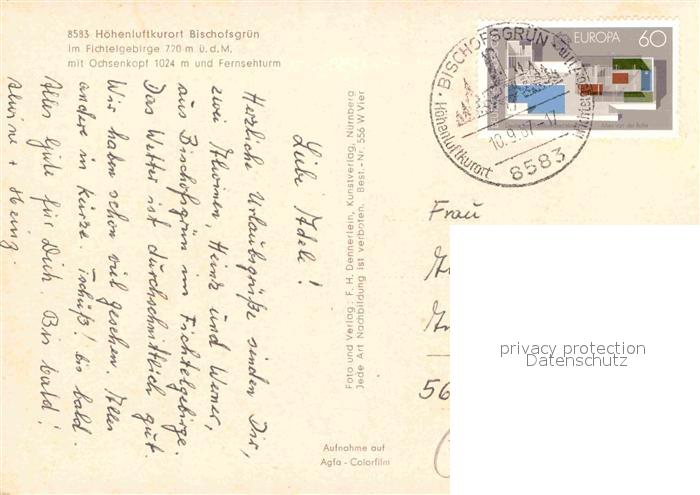 8583 Höhenluftkurort Bischofsgrün
im Fichtelgebirge 720 m ü.d.M.
mit Ochsenkopf 1024 m und Fernsehturm
Liebe Adele!
Herzliche Urlaubsgrüße senden Dir,
zwei Heinz und Werner,
aus Bischofsgrün im Fichtelgebirge.
Das Wetter ist durchschnittlich gut.
Wir haben schon viel gesehen. Alles
andere in Kürze. Tschüß! bis bald.
Alles Gute für Dich. Bis bald!
+ Heinz.
Foto und Verlag: F. H. Dennerlein, Kunstverlag, Nürnberg
Jede Art Nachbildung ist verboten. Best.-Nr. 556 W Vier
Aufnahme auf
Agfa - Colorfilm
BISCHOFSGRÜN
Höhenluftkurort
10.9.87-17
8583
EUROPA 60
Frau
56
privacy protection
Datenschutz